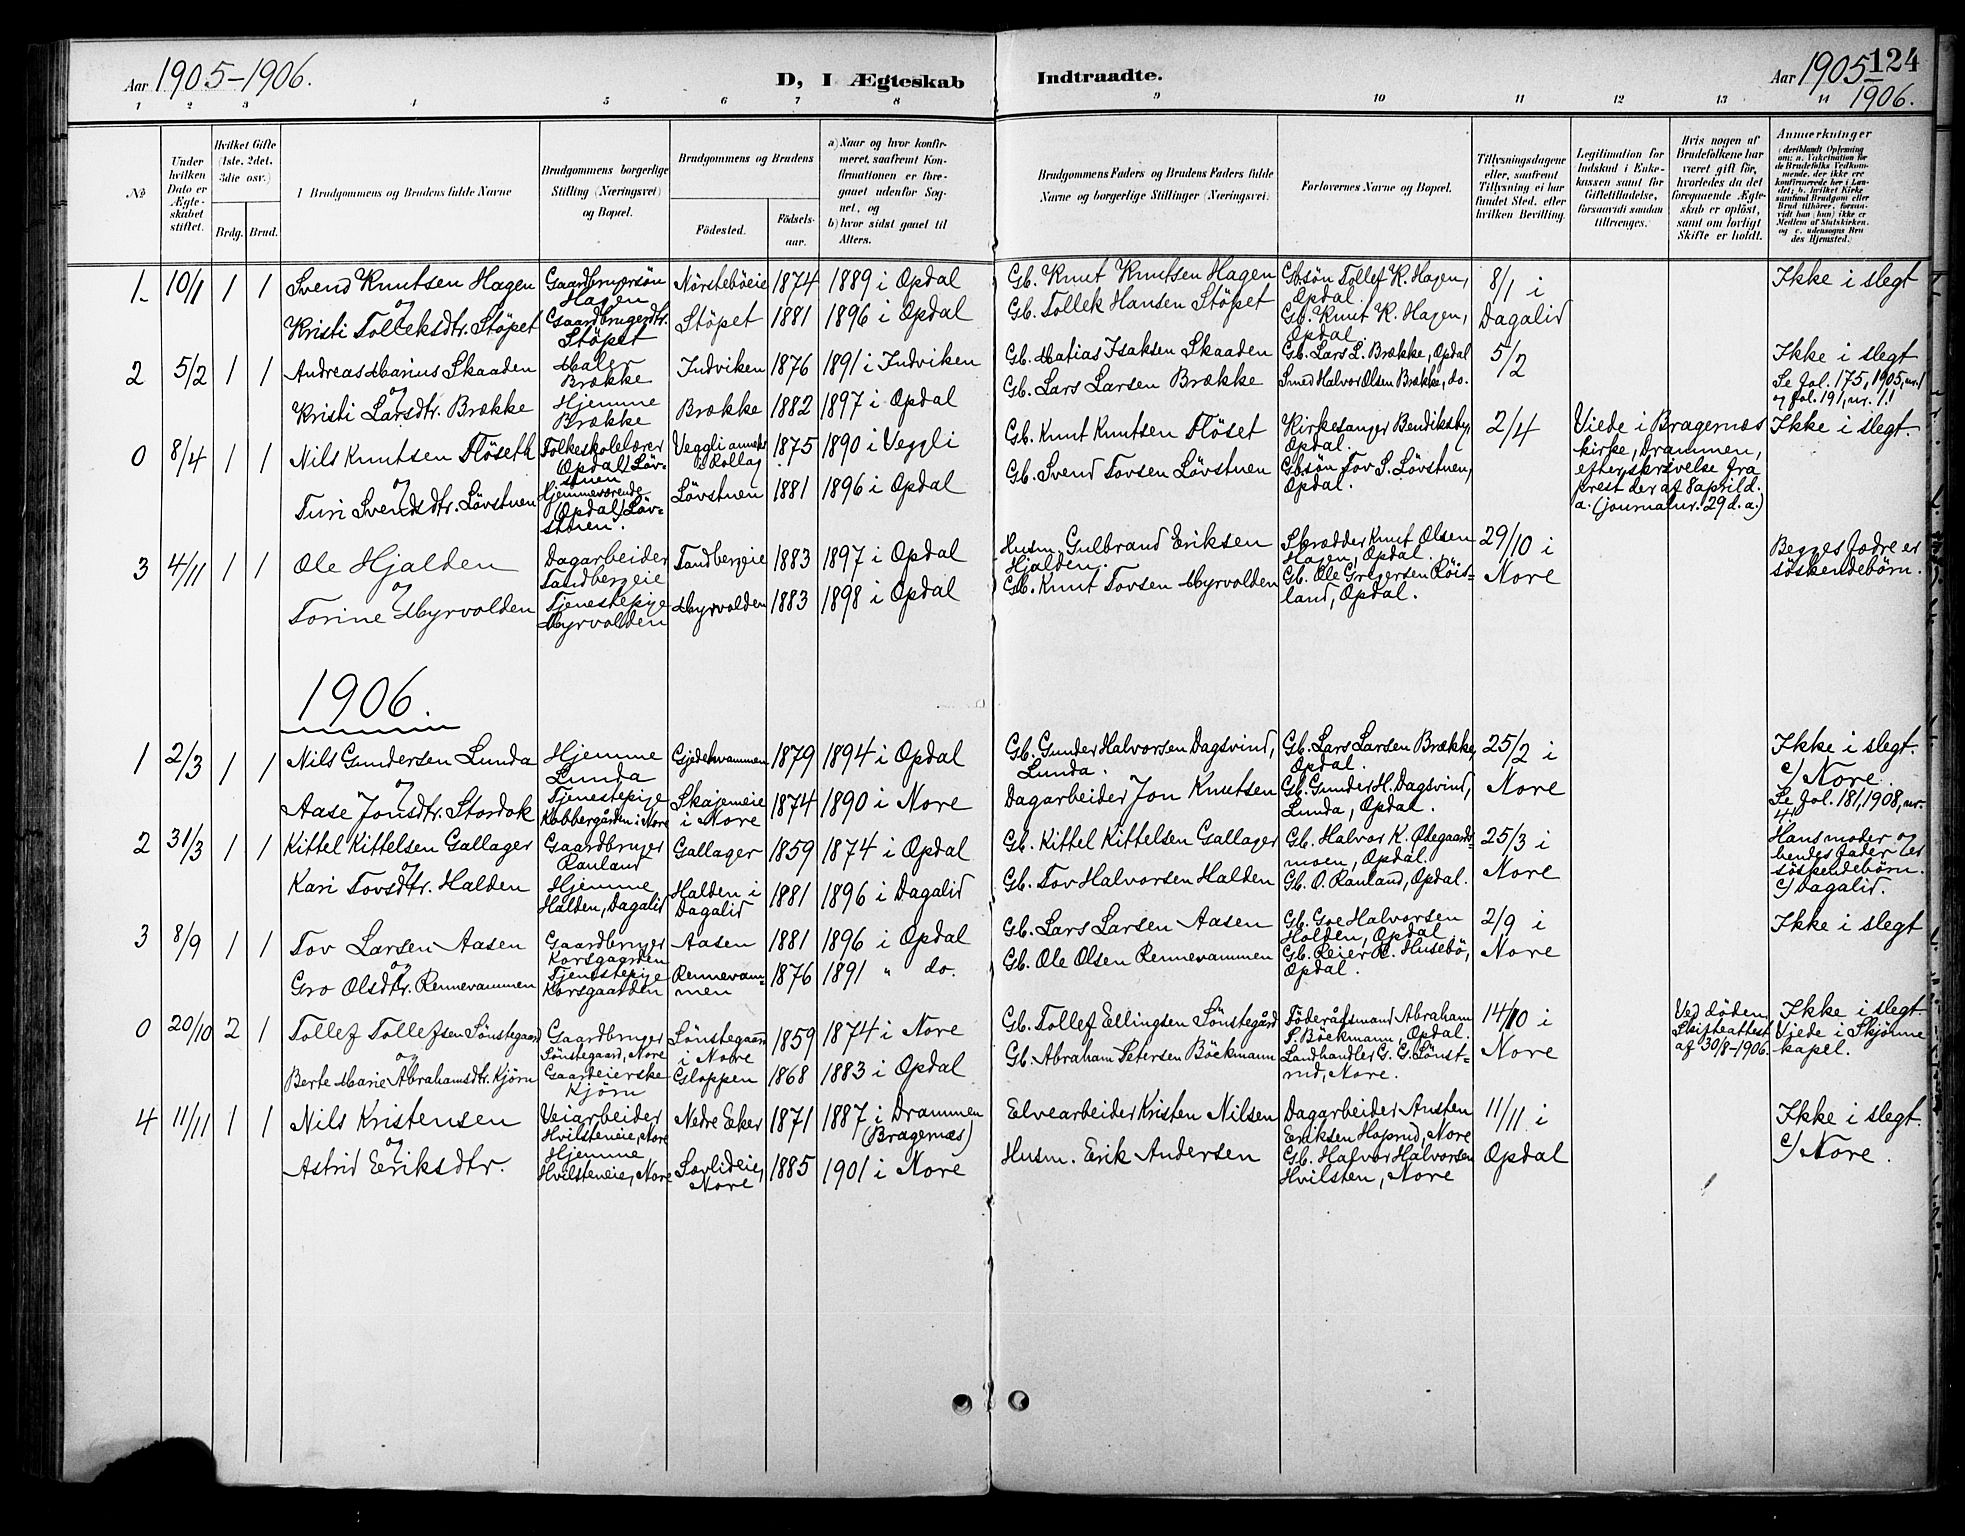 Aar 1905-1906.
D, I Ægteskab Indtraadte.
Aar 1905 124
1906.
1 2 3 4 5 6 7 8 9 10 11 12 13 14
№
Under hvilken Dato er Ægteskabet stiftet.
Hvilket Gifte (1ste, 2det, 3die osv.)
Brdg. Brud.
Brudgommens og Brudens fulde Navne
Brudgommens borgerlige Stilling (Næringsvei) og Bopæl.
Brudgommens og Brudens
Födested.
Födselsaar.
a) Naar og hvor konfirmeret, saafremt Konfirmationen er foregaaet udenfor Sognet, og
b) hvor sidst gaaet til Alters.
Brudgommens Faders og Brudens Faders fulde Navne og borgerlige Stillinger (Næringsvei)
Forlovernes Navne og Bopæl.
Tillysningsdagene eller, saafremt Tillysning ei har fundet Sted, efter hvilken Bevilling.
Legitimation for Indskud i Enkekassen samt for Giftetilladelse, forsaavidt saadan tiltrænges.
Hvis nogen af Brudefolkene har været gift för, hvorledes da det foregaaende Ægteskab er oplöst, samt om lovligt Skifte er holdt.
Anmærkninger
1. 10/1 1 1 Svend Knutsen Hagen Gaardbrugersön Hagen Nörsteböeie 1874 1889 i Opdal Gb. Knut Knutsen Hagen Gbsön Tollef K. Hagen, Opdal. 8/1 i Dagalid Ikke i slegt
og
Kristi Tolleksdtr. Stöpet Gaardbrugerdtr. Stöpet Stöpet 1881 1896 i Opdal Gb. Tollek Hansen Stöpet Gb. Knut K. Hagen, Opdal
2 5/2 1 1 Andreas Marius Skaaden Maler Brække Indviken 1876 1891 i Indviken Gb. Matias Isaksen Skaaden Gb. Lars L. Brække, Opdal 5/2 Ikke i slegt
og
Kristi Larsdtr. Brække Hjemme Brække Brække 1882 1897 i Opdal Gb. Lars Larsen Brække Smed Halvor Olsen Brække, do. Se fol. 175, 1905, nr. 1 og fol. 191, nr. 1.
0 8/4 1 1 Nils Knutsen Flöseth Folkeskolelærer Opdal/Lövstuen Veggli anneks til Rollag 1875 1890 i Veggli Gb. Knut Knutsen Flöset Kirkesanger Bendiksby, Opdal. 2/4 Viede i Bragernæs kirke, Drammen, efter skrivelse fra prest der af 8 april d. a. (journalnr. 29 d. a.) Ikke i slegt.
og
Turi Svendsdtr. Lövstuen Hjemmeværende Opdal/Lövstuen. Lövstuen 1881 1896 i Opdal Gb. Svend Tovsen Lövstuen Gbsön Tov S. Lövstuen, Opdal.
3 4/11 1 1 Ole Hjalden Dagarbeider Tandbergeie Tandbergeie 1883 1897 i Opdal Husm. Gulbrand Eriksen Hjalden. Skrædder Knut Olsen Hagen, Opdal. 29/10 i Nore Begges fædre er söskendebörn.
og
Torine Myrvolden Tjenestepige Myrvolden Myrvolden 1883 1898 i Opdal Gb. Knut Tovsen Myrvolden Gb. Ole Gregersen Röisland, Opdal.
1906.
1 2/3 1 1 Nils Gundersen Lunda Hjemme Lunda Gjedekvammen 1879 1894 i Opdal Gb. Gunder Halvorsen Dagsvind, Lunda. Gb. Lars Larsen Brække, Opdal. 25/2 i Nore Ikke i slegt.
og
Aase Jonsdtr. Stordok Tjenestepige Kobbergården i Nore Skajemeie i Nore 1874 1890 i Nore Dagarbeider Jon Knutsen Gb. Gunder H. Dagsvind, Lunda, Opdal. c/ Nore. Se fol. 181, 1908, nr. 4.
2 31/3 1 1 Kittel Kittelsen Gallager Gaardbruger Rauland Gallager 1859 1874 i Opdal Gb. Kittel Kittelsen Gallager Gb. Halvor K. Ödegaardsmoen, Opdal. 25/3 i Nore Hans moder og hendes fader er söskendebörn. c/ Dagalid.
og
Kari Tovsdtr. Halden Hjemme Halden, Dagalid Halden i Dagalid 1881 1896 i Dagalid Gb. Tov Halvorsen Halden Gb. O. Rauland, Opdal.
3 8/9 1 1 Tov Larsen Aasen Gaardbruger Korsgaarden Aasen 1881 1896 i Opdal Gb. Lars Larsen Aasen Gb. Goe Halvorsen Holden, Opdal 2/9 i Nore Ikke i slegt
og
Gro Olsdtr. Rennevammen Tjenestepige Korsgaarden Rennevammen 1876 1891 " do. Gb. Ole Olsen Rennevammen Gb. Reier R. Husebö, Opdal.
0 20/10 2 1 Tollef Tollefsen Sönstegaard Gaardbruger Sönstegaard, Nore Sönstegaard i Nore 1859 1874 i Nore Gb. Tollef Ellingsen Sönstegård Föderådsmand Abraham P. Böckmann, Opdal. 14/10 i Nore Ved döden. Skifteattest af 30/8-1906. Ikke i slegt. Viede i Skjönne kapel.
og
Berte Marie Abrahamsdtr. Kjörn Gaardeierske Kjörn Gloppen 1868 1883 i Opdal Gb. Abraham Petersen Böckmann Landhandler G. G. Sönstrud, Nore.
4 11/11 1 1 Nils Kristensen Veiarbeider Hvilsteneie, Nore Nedre Eker 1871 1887 i Drammen (Bragernæs) Elvearbeider Kristen Nilsen Dagarbeider Austen Eriksen Hoprud, Nore 11/11 i Opdal Ikke i slegt.
og
Astrid Eriksdtr. Hjemme Hvilsteneie, Nore Sorlideie, Nore 1885 1901 i Nore Husm. Erik Andersen Gb. Halvor Halvorsen Hvilsten, Nore c/ Nore.